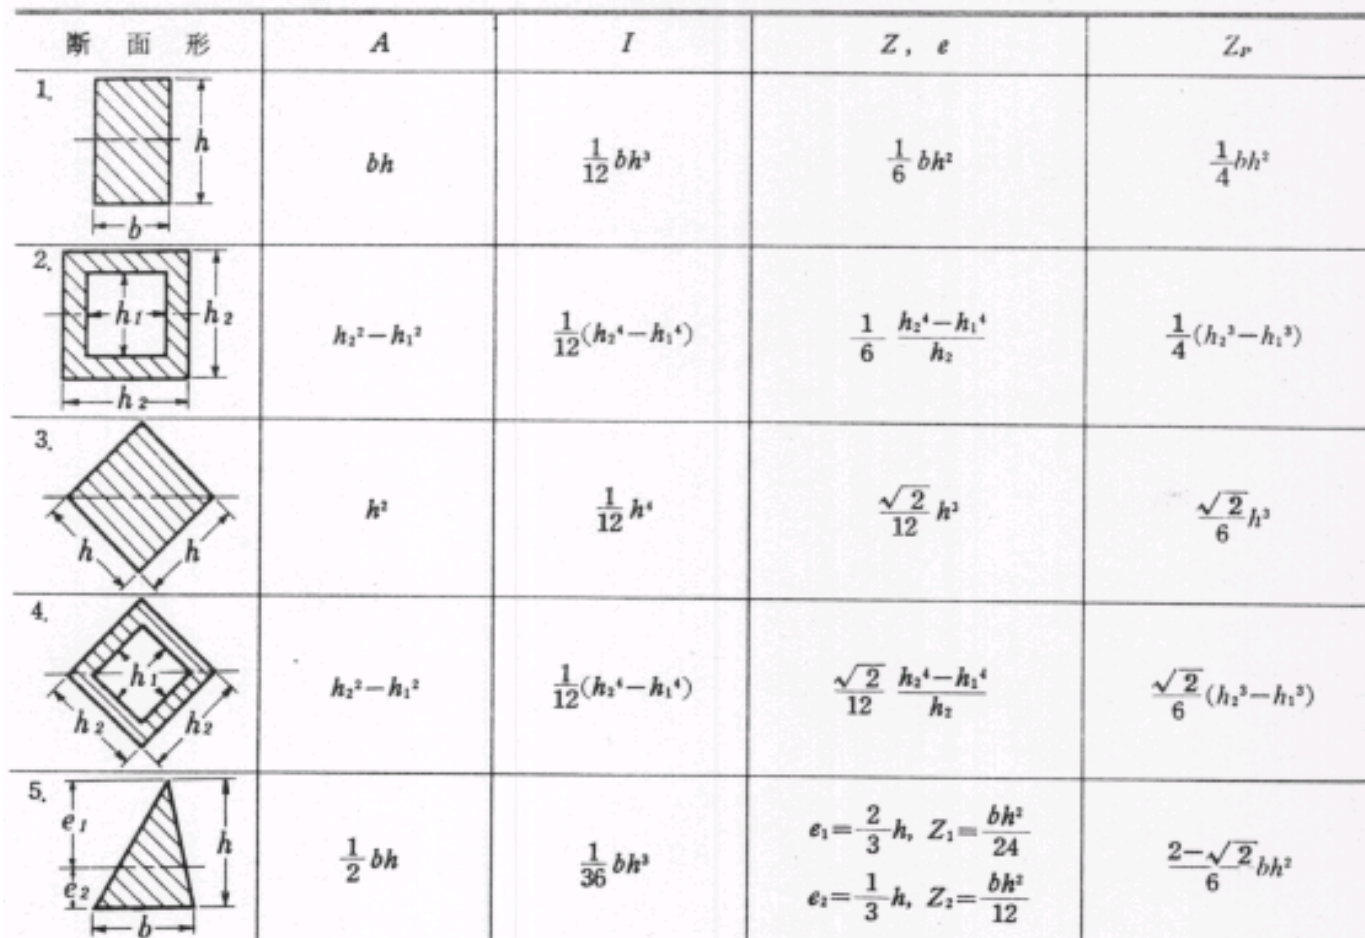 断面形 A I Z, e Zp
1. h b bh 1/12 bh³ 1/6 bh² 1/4 bh²
2. h₁ h₂ h₂ h₂²−h₁² 1/12(h₂⁴−h₁⁴) 1/6 (h₂⁴−h₁⁴)/h₂ 1/4(h₂³−h₁³)
3. h h h² 1/12 h⁴ √2/12 h³ √2/6 h³
4. h₁ h₂ h₂ h₂²−h₁² 1/12(h₂⁴−h₁⁴) √2/12 (h₂⁴−h₁⁴)/h₂ √2/6 (h₂³−h₁³)
5. e₁ e₂ h b 1/2 bh 1/36 bh³ e₁=2/3 h, Z₁=bh²/24 (2−√2)/6 bh²
e₂=1/3 h, Z₂=bh²/12